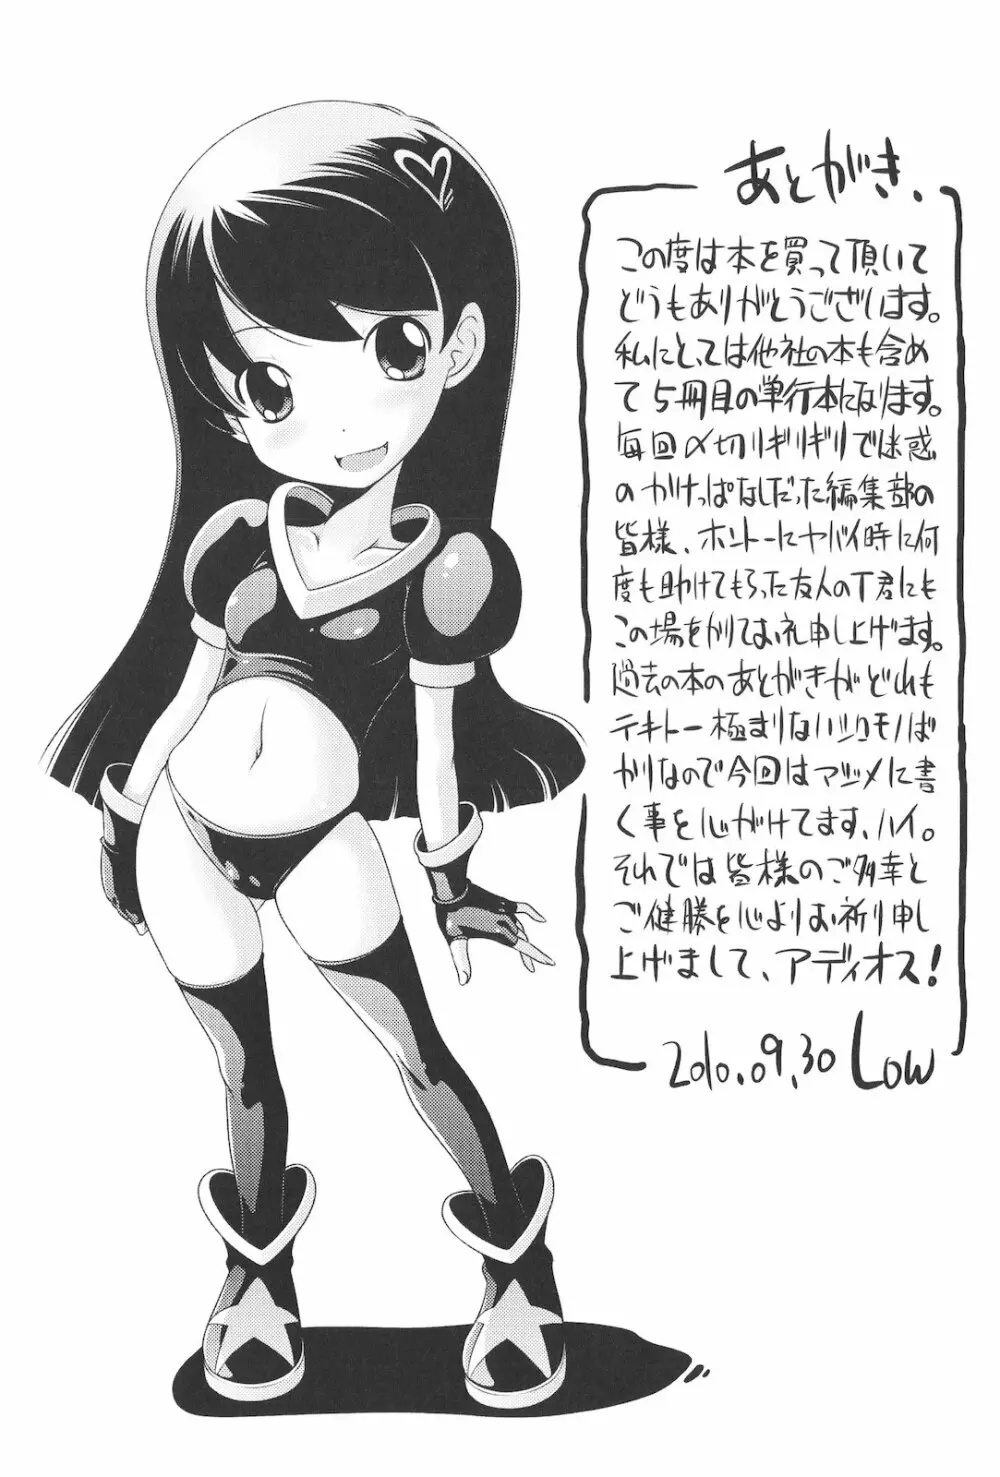 あとがき、
この度は本を買って頂いて
どうもありがとうございます。
私にとっては他社の本も含め
て5冊目の単行本になります。
毎回〆切りギリギリで迷惑
のかけっぱなしだった編集部の
皆様、ホントーにヤバイ時に何
度も助けてもらった友人のT君にも
この場をかりてお礼申し上げます。
過去の本のあとがきがどれも
テキトー極まりないシロモノば
かりなので今回はマジメに書
く事を心がけてます、ハイ。
それでは皆様のご多幸と
ご健勝を心よりお祈り申し
上げまして、アディオス!
2010.09.30 LOW